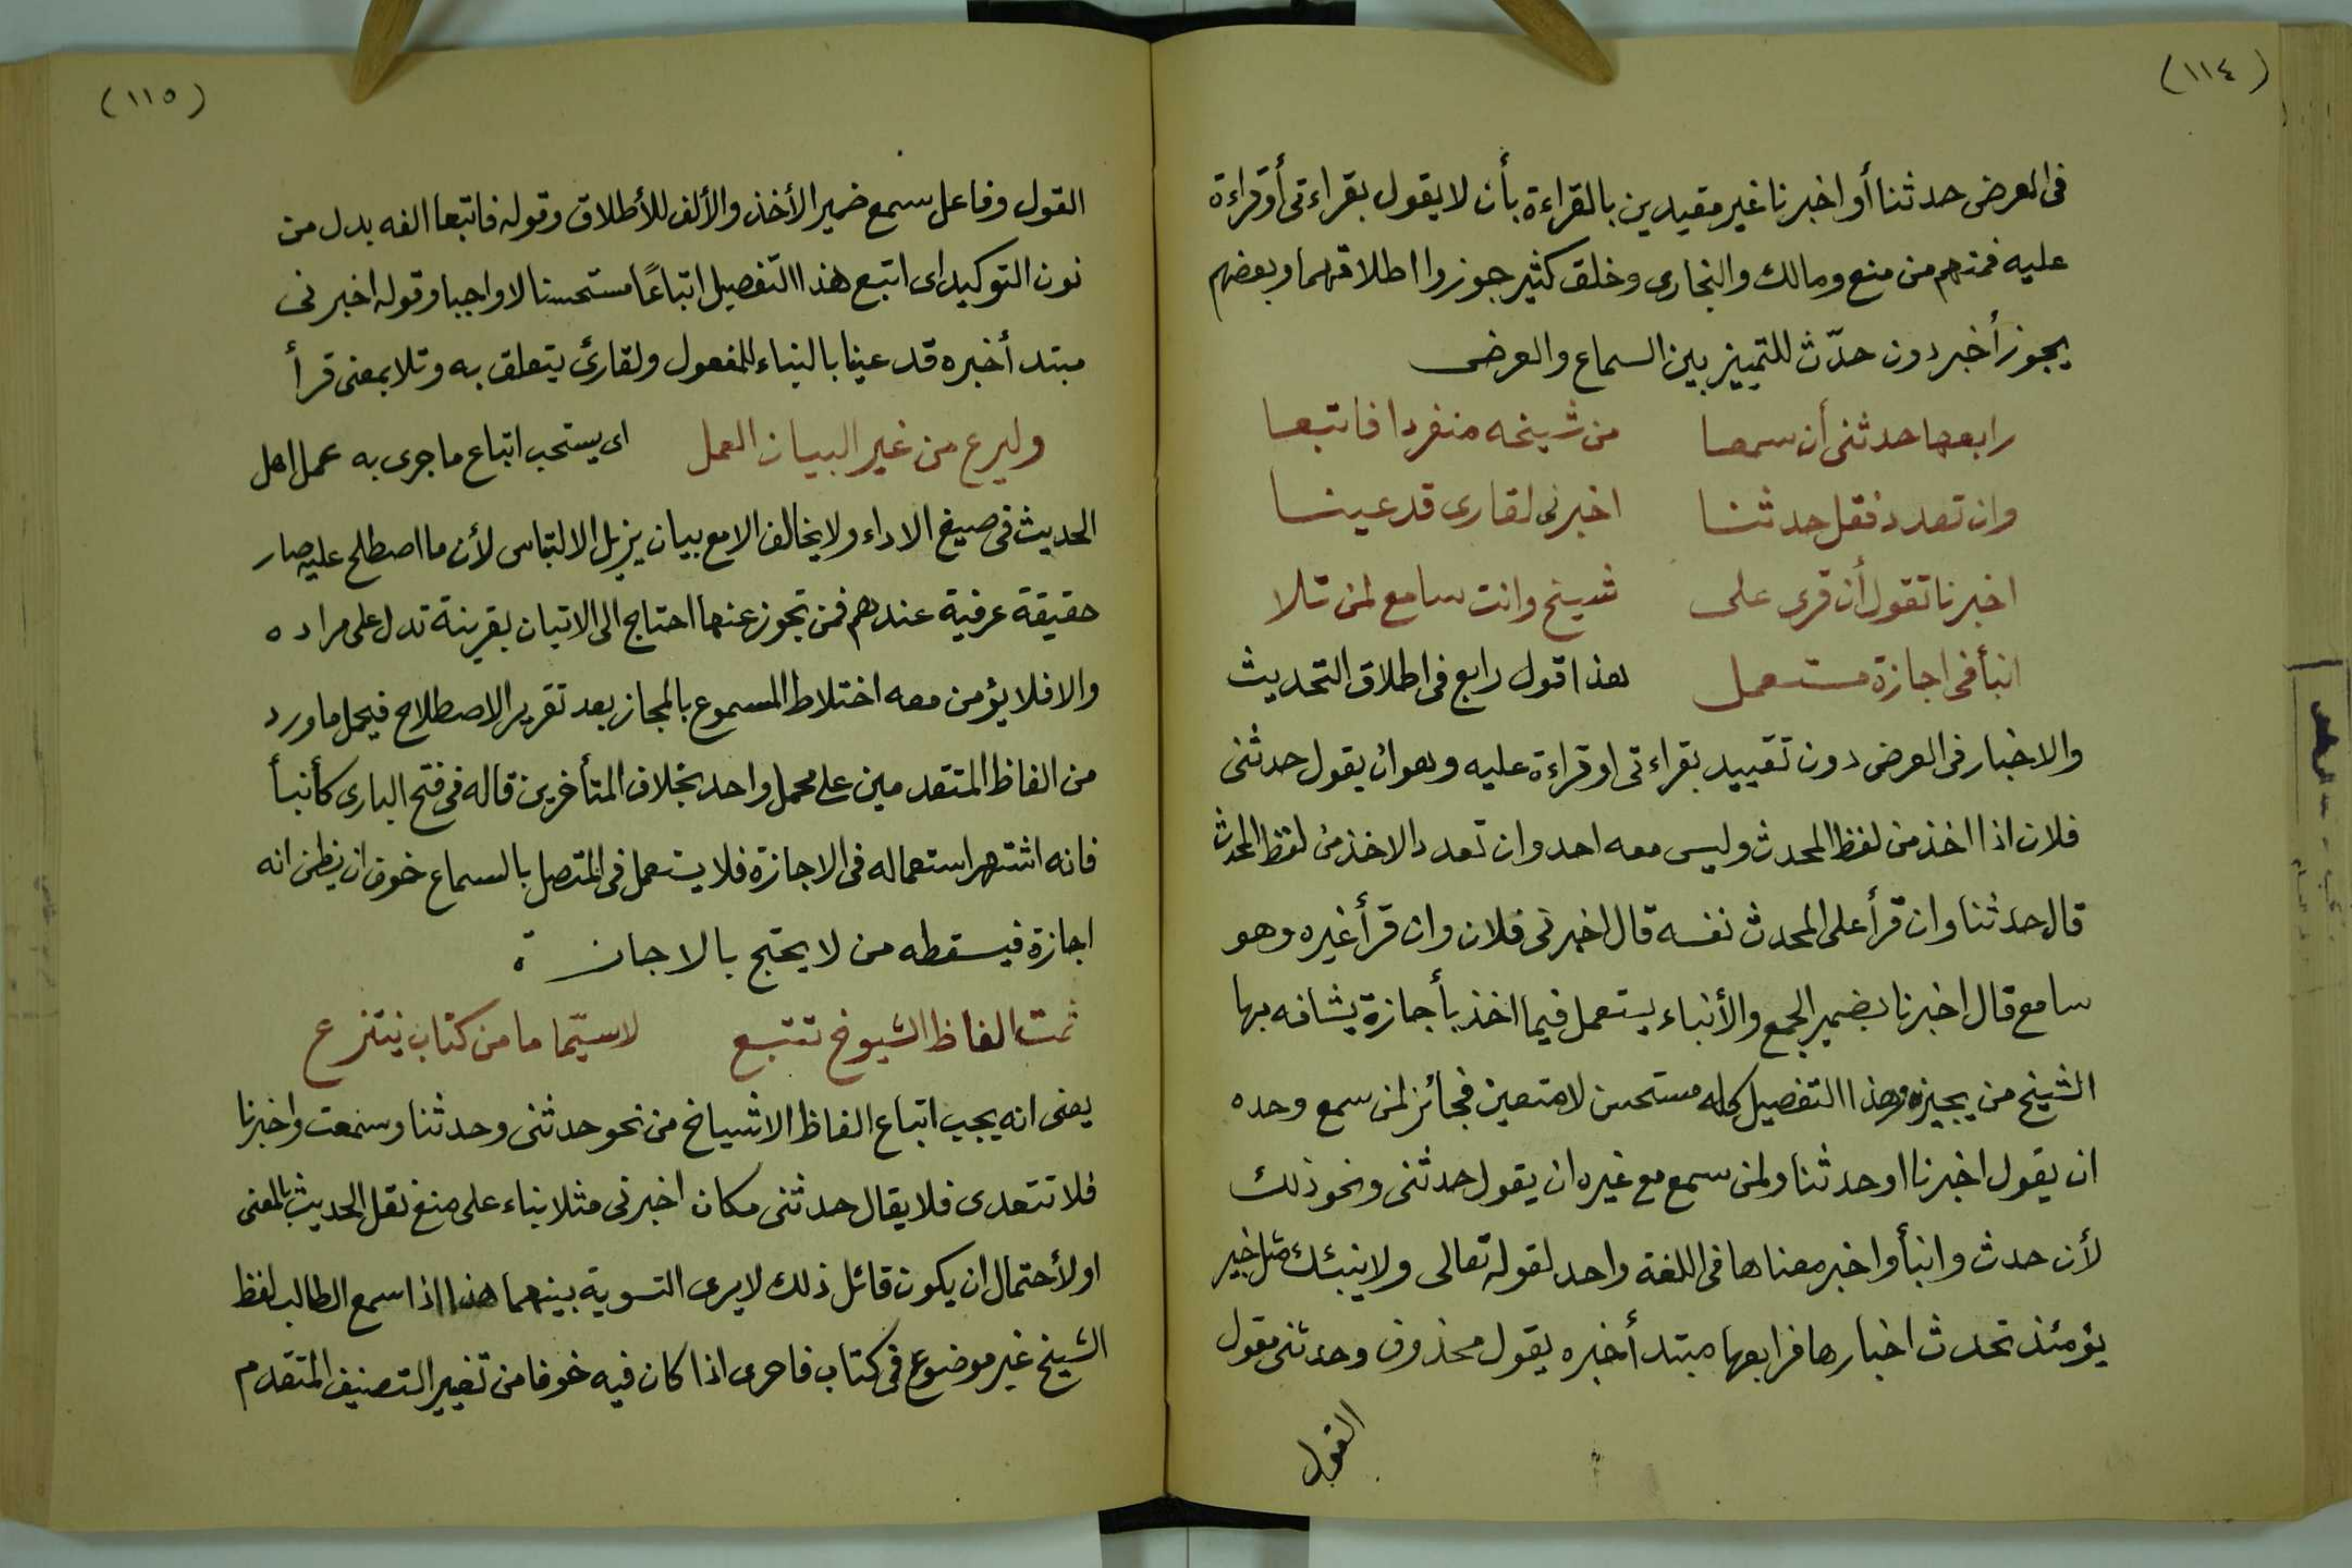 (١١٤)
فى العرض حدثنا أو اخبرنا غير مقيدين بالقراءة بأن لا يقول بقراءتى أو قراءة
عليه فمنهم من منع ومالك والبخارى وخلق كثير جوزوا اطلاقهما وبعضهم
يجوز أخبر دون حدّث للتمييز بين السماع والعرض
رابعها حدثنى أن سمعا من شيخه منفردا فاتبعا
وان تعدد فقل حدثنا اخبرنى لقارى قد عينا
اخبرنا تقول أن قرى على شيخ وانت سامع لمن تلا
انبأ فى اجازة مستعمل هذا قول رابع فى اطلاق التحديث
والاخبار فى العرض دون تقييد بقراءتى او قراءة عليه وهو ان يقول حدثنى
فلان اذا اخذ من لفظ المحدث وليس معه احد وان تعدد الاخذ من لفظ المحدث
قال حدثنا وان قرأ على المحدث نفسه قال اخبرنى فلان وان قرأ غيره وهو
سامع قال اخبرنا بضمير الجمع والأنباء يستعمل فيما اخذ بأجازة يشافه بها
الشيخ من يجيزه وهذا التفصيل كله مستحسن لا متعين فجائز لمن سمع وحده
ان يقول اخبرنا او حدثنا ولمن سمع مع غيره ان يقول حدثنى ونحو ذلك
لأن حدث وانبأ واخبر معناها فى اللغة واحد لقوله تعالى ولا ينبئك مثل خبير
يؤمئذ تحدث اخبارها فرابعها مبتدأ خبره يقول محذوف وحدثنى مقول
القول
(١١٥)
القول وفاعل سمع ضمير الأخذ والألف للأطلاق وقوله فاتبعا الفه بدل من
نون التوكيد اى اتبع هذا التفصيل اتباعًا مستحسنا لا واجبا وقوله اخبرنى
مبتدأ خبره قد عينا بالبناء للمفعول ولقارئ يتعلق به وتلا بمعنى قرأ
وليرع من غير البيان العمل اى يستحب اتباع ما جرى به عمل اهل
الحديث فى صيغ الاداء ولا يخالف الا مع بيان يزيل الالتباس لأن ما اصطلح عليه صار
حقيقة عرفية عندهم فمن تجوز عنها احتاج الى الاتيان بقرينة تدل على مراده
والا فلا يؤمن معه اختلاط المسموع بالمجاز بعد تقرير الاصطلاح فيحمل ما ورد
من الفاظ المتقدمين على محمل واحد بخلاف المتأخرين قاله فى فتح البارى كأنبأ
فانه اشتهر استعماله فى الاجازة فلا يستعمل فى المتصل بالسماع خوف ان يظن انه
اجازة فيسقطه من لا يحتج بالاجازة
ثمت الفاظ الشيوخ تتبع لاسيّما ما من كتاب ينتزع
يعنى انه يجب اتباع الفاظ الاشياخ من نحو حدثنى وحدثنا وسمعت واخبرنا
فلا تتعدى فلا يقال حدثنى مكان اخبرنى مثلا بناء على منع نقل الحديث بالمعنى
او لأحتمال ان يكون قائل ذلك لا يرى التسوية بينهما هذا اذا سمع الطالب لفظ
الشيخ غير موضوع فى كتاب فاحرى اذا كان فيه خوفا من تغيير التصنيف المتقدم